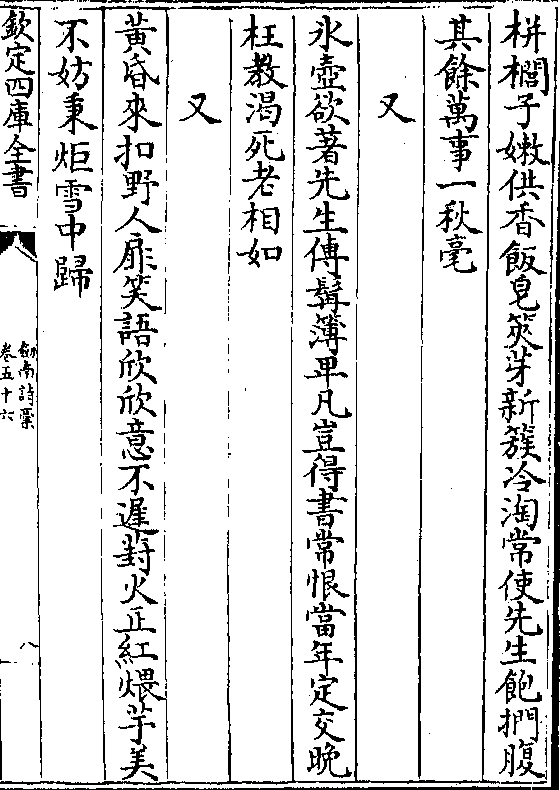 栟櫚子嫩供香飯皂筴芽新簇冷淘常使先生飽捫腹
其餘萬事一秋毫
又
氷壺欲著先生傳髯簿卑凡豈得書常恨當年定交晚
枉教渴死老相如
又
黃昏來扣野人扉笑語欣欣意不遲葑火正紅煨芋美
不妨秉炬雪中歸
欽定四庫全書
劍南詩藁
卷五十六
八